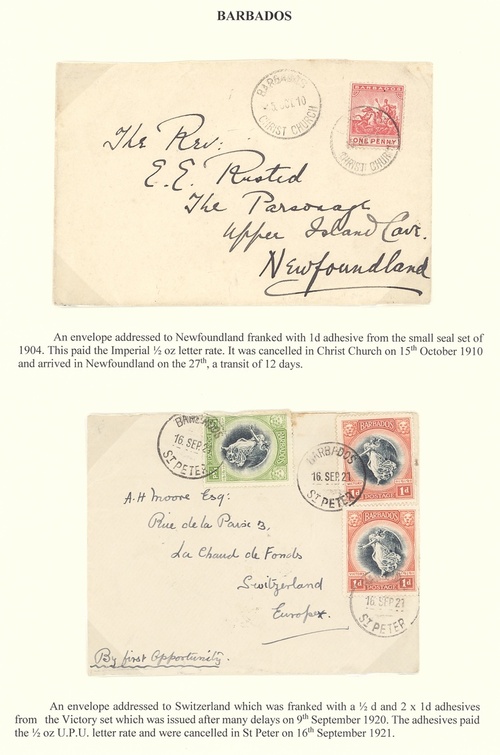 BARBADOS
BARBADOS
OCT 10
CHRIST CHURCH
BARBADOS
ONE PENNY
CHRIST CHURCH
The Rev:
E. E. Rusted
The Parsonage
Upper Island Cove.
Newfoundland
An envelope addressed to Newfoundland franked with 1d adhesive from the small seal set of
1904. This paid the Imperial ½ oz letter rate. It was cancelled in Christ Church on 15th October 1910
and arrived in Newfoundland on the 27th, a transit of 12 days.
BARBADOS
16 SEP 21
ST PETER
BARBADOS
BARBADOS
16 SEP 21
ST PETER
BARBADOS
1d POSTAGE 1d
BARBADOS
1d POSTAGE 1d
16 SEP 21
ST PETER
A. H Moore Esq:
Rue de la Paix 3,
La Chaud de Fonds
Switzerland
Europe.
By first Opportunity.
An envelope addressed to Switzerland which was franked with a ½ d and 2 x 1d adhesives
from the Victory set which was issued after many delays on 9th September 1920. The adhesives paid
the ½ oz U.P.U. letter rate and were cancelled in St Peter on 16th September 1921.